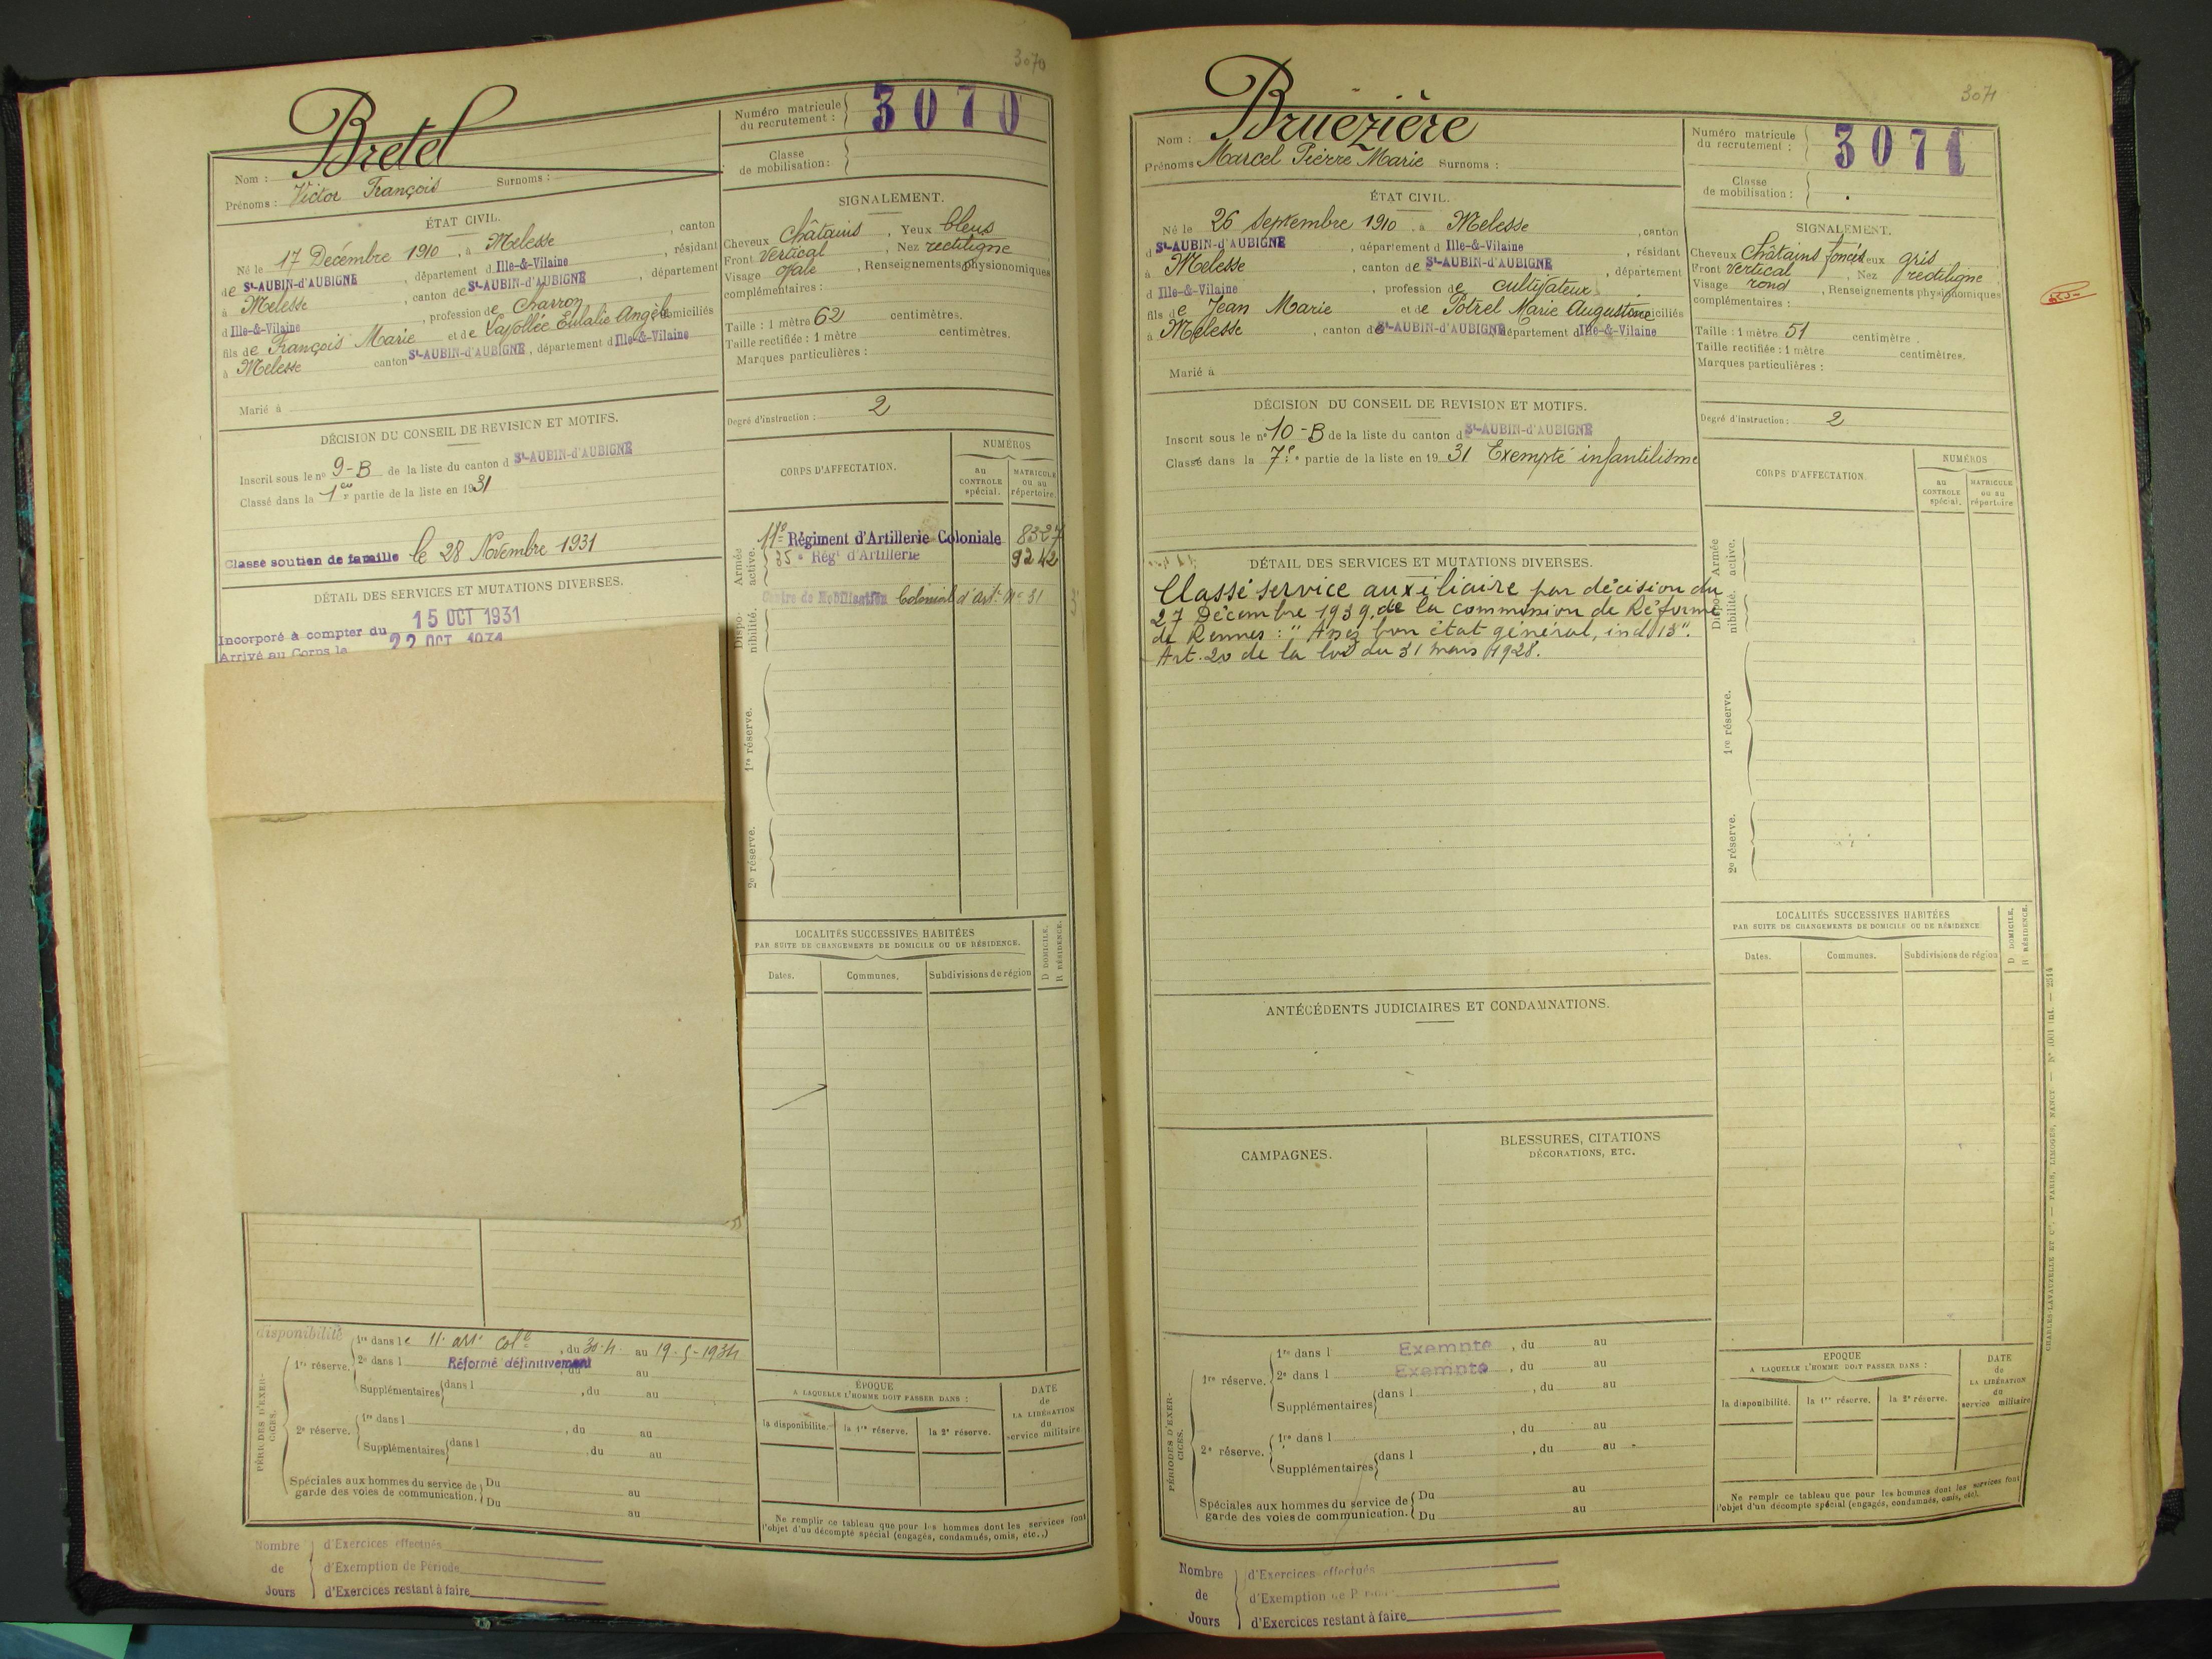 3070
Bretel
Nom :
Prénoms : Victor François Surnoms :
Numéro matricule du recrutement : 3070
Classe de mobilisation :
ÉTAT CIVIL.
Né le 17 Décembre 1910, à Melesse, canton
de St-AUBIN-d'AUBIGNÉ, département d Ille-&-Vilaine, résidant
à Melesse, canton de St-AUBIN-d'AUBIGNÉ, département
d Ille-&-Vilaine, profession de Charron
fils de François Marie et de Eulalie Angèle domiciliés
à Melesse canton St-AUBIN-d'AUBIGNÉ, département d Ille-&-Vilaine
Marié à
SIGNALEMENT.
Cheveux Châtains, Yeux bleus
Front Vertical, Nez rectiligne
Visage ovale, Renseignements physionomiques
complémentaires :
Taille : 1 mètre 62 centimètres.
Taille rectifiée : 1 mètre centimètres.
Marques particulières :
Degré d'instruction : 2
DÉCISION DU CONSEIL DE REVISION ET MOTIFS.
Inscrit sous le n° 9-B de la liste du canton d St-AUBIN-d'AUBIGNÉ
Classé dans la 1ère partie de la liste en 1931
Classé soutien de famille le 28 Novembre 1931
DÉTAIL DES SERVICES ET MUTATIONS DIVERSES.
Incorporé à compter du 15 OCT 1931
Arrivé au Corps le 22 OCT 1931
CORPS D'AFFECTATION.
NUMÉROS
au CONTROLE spécial.
MATRICULE ou au répertoire.
Armée active.
11e Régiment d'Artillerie Coloniale 8327
35e Régt d'Artillerie 9242
Disponibilité.
Centre de Mobilisation Colonial d'Artie N° 31
1re réserve.
2e réserve.
LOCALITÉS SUCCESSIVES HABITÉES
PAR SUITE DE CHANGEMENTS DE DOMICILE OU DE RÉSIDENCE.
D DOMICILE.
R RÉSIDENCE.
Dates. Communes. Subdivisions de région
PÉRIODES D'EXERCICES.
disponibilité
1re réserve. 1re dans le 11e arte cole, du 30-4 au 19-5-1934
2e dans l Réformé définitivement, du au
Supplémentaires dans l, du au
2e réserve. 1re dans l, du au
Supplémentaires dans l, du au
Spéciales aux hommes du service de garde des voies de communication. Du au
Du au
ÉPOQUE
A LAQUELLE L'HOMME DOIT PASSER DANS :
la disponibilité. la 1re réserve. la 2e réserve.
DATE de LA LIBÉRATION du service militaire
Ne remplir ce tableau que pour les hommes dont les services font
l'objet d'un décompte spécial (engagés, condamnés, omis, etc.,)
Nombre de Jours
d'Exercices effectués
d'Exemption de Période
d'Exercices restant à faire
3071
Bruezière
Nom :
Prénoms Marcel Pierre Marie Surnoms :
Numéro matricule du recrutement : 3071
Classe de mobilisation :
ÉTAT CIVIL.
Né le 26 Septembre 1910, à Melesse, canton
d St-AUBIN-d'AUBIGNÉ, département d Ille-&-Vilaine, résidant
à Melesse, canton de St-AUBIN-d'AUBIGNÉ, département
d Ille-&-Vilaine, profession de cultivateur
fils de Jean Marie et de Potrel Marie Augustine domiciliés
à Melesse, canton de St-AUBIN-d'AUBIGNÉ département d Ille-&-Vilaine
Marié à
SIGNALEMENT.
Cheveux Châtains foncés Yeux gris
Front Vertical, Nez rectiligne
Visage rond, Renseignements physionomiques
complémentaires :
Taille : 1 mètre 51 centimètre.
Taille rectifiée : 1 mètre centimètres.
Marques particulières :
Degré d'instruction : 2
DÉCISION DU CONSEIL DE REVISION ET MOTIFS.
Inscrit sous le n° 10-B de la liste du canton d St-AUBIN-d'AUBIGNÉ
Classé dans la 7e partie de la liste en 1931 Exempté infantilisme
DÉTAIL DES SERVICES ET MUTATIONS DIVERSES.
Classé service auxiliaire par décision du
27 Décembre 1939, de la commission de Réforme
de Rennes : "Assez bon état général, ind 13".
Art. 20 de la loi du 31 mars 1928.
CORPS D'AFFECTATION
NUMÉROS
au CONTROLE spécial.
MATRICULE ou au répertoire
Armée active.
Disponibilité.
1re réserve.
2e réserve.
ANTÉCÉDENTS JUDICIAIRES ET CONDAMNATIONS.
CAMPAGNES.
BLESSURES, CITATIONS
DÉCORATIONS, ETC.
LOCALITÉS SUCCESSIVES HABITÉES
PAR SUITE DE CHANGEMENTS DE DOMICILE OU DE RÉSIDENCE
D DOMICILE.
R RÉSIDENCE.
Dates. Communes. Subdivisions de région
PÉRIODES D'EXERCICES.
1re réserve. 1re dans l Exempté, du au
2e dans l Exempté, du au
Supplémentaires dans l, du au
2e réserve. 1re dans l, du au
Supplémentaires dans l, du au
Spéciales aux hommes du service de garde des voies de communication. Du au
Du au
ÉPOQUE
A LAQUELLE L'HOMME DOIT PASSER DANS :
la disponibilité. la 1re réserve. la 2e réserve.
DATE de LA LIBÉRATION du service militaire
Ne remplir ce tableau que pour les hommes dont les services font
l'objet d'un décompte spécial (engagés, condamnés, omis, etc).
Nombre de Jours
d'Exercices effectués
d'Exemption de Période
d'Exercices restant à faire
CHARLES-LAVAUZELLE ET Cie. — PARIS, LIMOGES, NANCY — N° 1001 int. — 2514